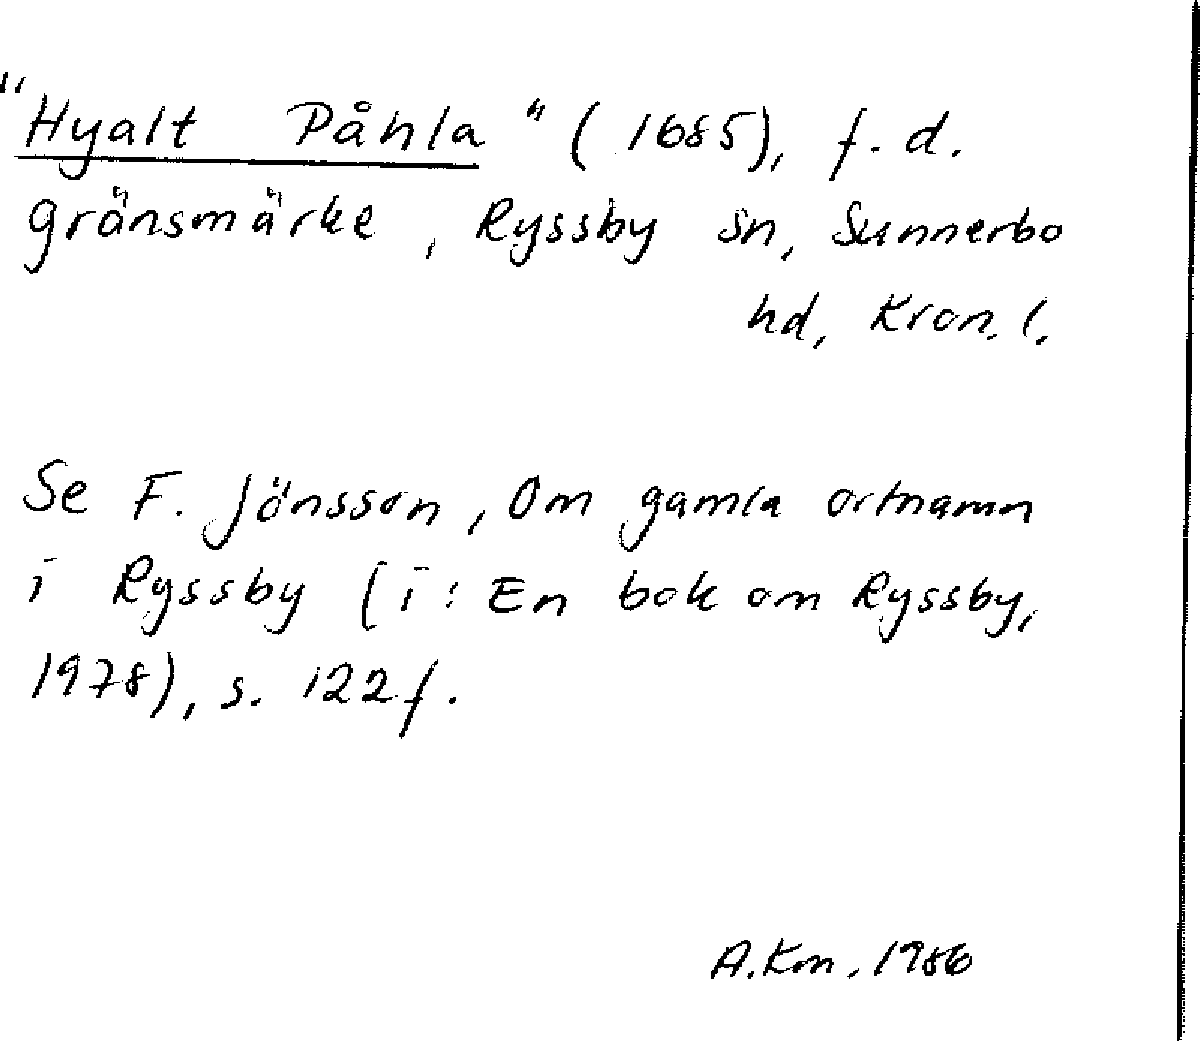 "Hyalt Påhla" (1685), f.d.
gränsmärke, Ryssby sn, Sunnerbo
hd, Kron. l.
Se F. Jönsson, Om gamla ortnamn
i Ryssby (i: En bok om Ryssby,
1978), s. 122 f.
A. Km. 1986